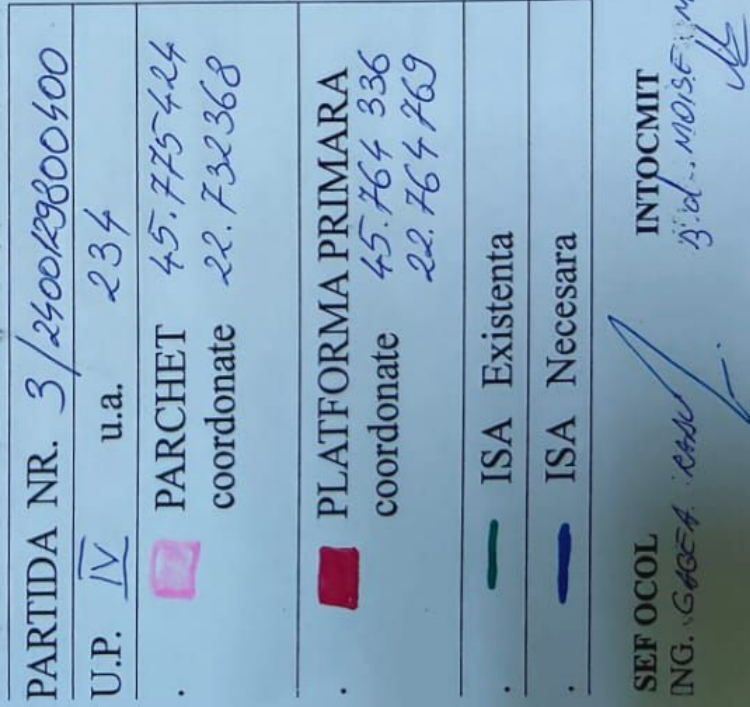 PARTIDA NR. 3/2400129800400
U.P. IV u.a. 234
. PARCHET 45.775424
coordonate 22.732368
. PLATFORMA PRIMARA
coordonate 45.764 336
22.764769
. ISA Existenta
. ISA Necesara
SEF OCOL
ING.
INTOCMIT
MOISE